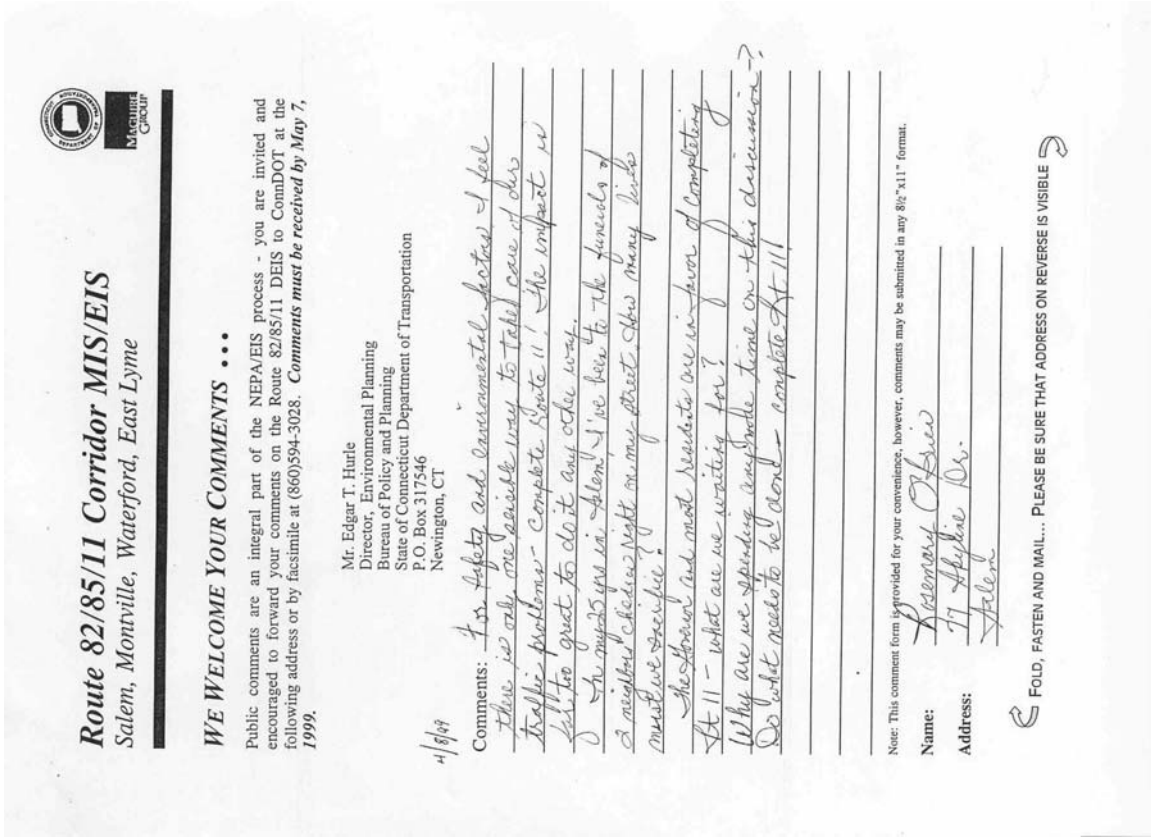 Route 82/85/11 Corridor MIS/EIS
Salem, Montville, Waterford, East Lyme
MAGUIRE
GROUP
WE WELCOME YOUR COMMENTS ...
Public comments are an integral part of the NEPA/EIS process - you are invited and
encouraged to forward your comments on the Route 82/85/11 DEIS to ConnDOT at the
following address or by facsimile at (860)594-3028. Comments must be received by May 7,
1999.
Mr. Edgar T. Hurle
Director, Environmental Planning
Bureau of Policy and Planning
State of Connecticut Department of Transportation
P.O. Box 317546
Newington, CT
4/8/99
Comments: For safety and environmental factors I feel
there is only one sensible way to take care of our
traffic problems - complete Route 11! The impact is
far too great to do it any other way.
In my 25 yrs in Salem I've been to the funerals of
2 neighbors' children right on my street. How many lives
must we sacrifice?
The Governor and most residents are in favor of completing
Rt 11 - what are we waiting for?
Why are we spending anymore time on this discussion-?
Do what needs to be done - complete Rt. 11!
Note: This comment form is provided for your convenience, however, comments may be submitted in any 8½"x11" format.
Name: Rosemary O'Brien
Address: 77 Skyline Dr.
Salem
FOLD, FASTEN AND MAIL... PLEASE BE SURE THAT ADDRESS ON REVERSE IS VISIBLE